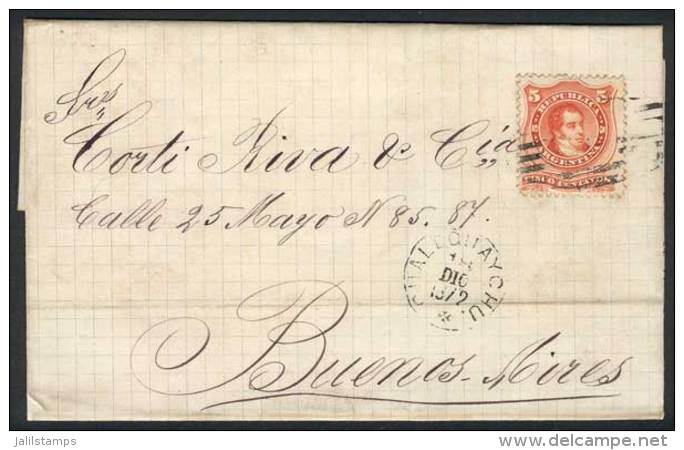 Sres
Corti Riva & Cía
Calle 25 Mayo N 85. 87.
Buenos-Aires
5 REPUBLICA 5
ARGENTINA
CINCO CENTAVOS
GUALEGUAYCHU.
DIC
1872
jalilstamps
www.delcampe.net